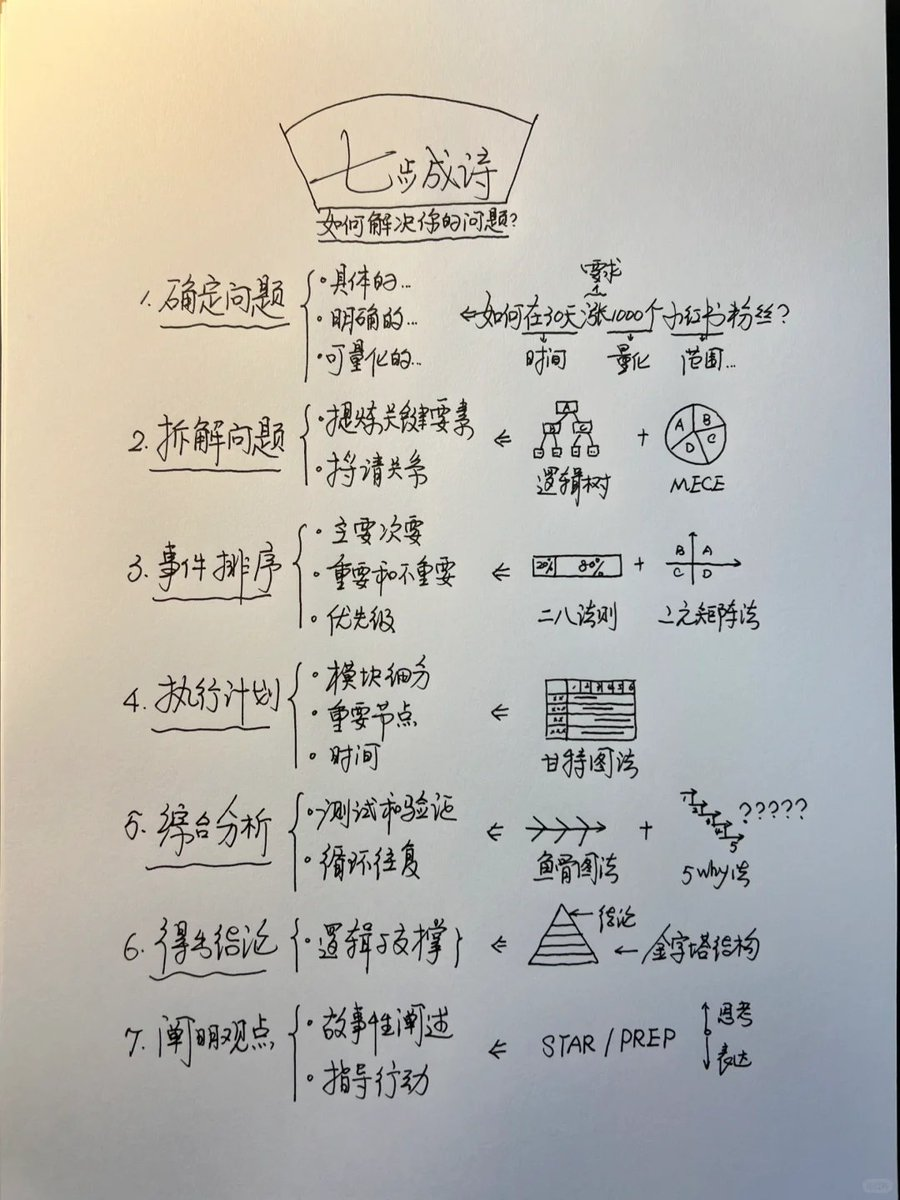 七步成诗
如何解决你的问题?
1. 确定问题
·具体的...
·明确的...
·可量化的...
要求
如何在30天涨1000个小红书粉丝?
时间 量化 范围...
2. 拆解问题
·提炼关键要素
·捋请关系
A
B C
逻辑树
+
A B C D
MECE
3. 事件排序
·主要次要
·重要和不重要
·优先级
20% 80%
二八法则
+
B A
C D
二元矩阵法
4. 执行计划
·模块细分
·重要节点
·时间
1 2 3 4 5 6
甘特图法
5. 综合分析
·测试和验证
·循环往复
鱼骨图法
+
1 2 3 4 5
?????
5why法
6. 得出结论
·逻辑与支撑
结论
金字塔结构
7. 阐明观点
·故事性阐述
·指导行动
STAR/PREP
思考
表达